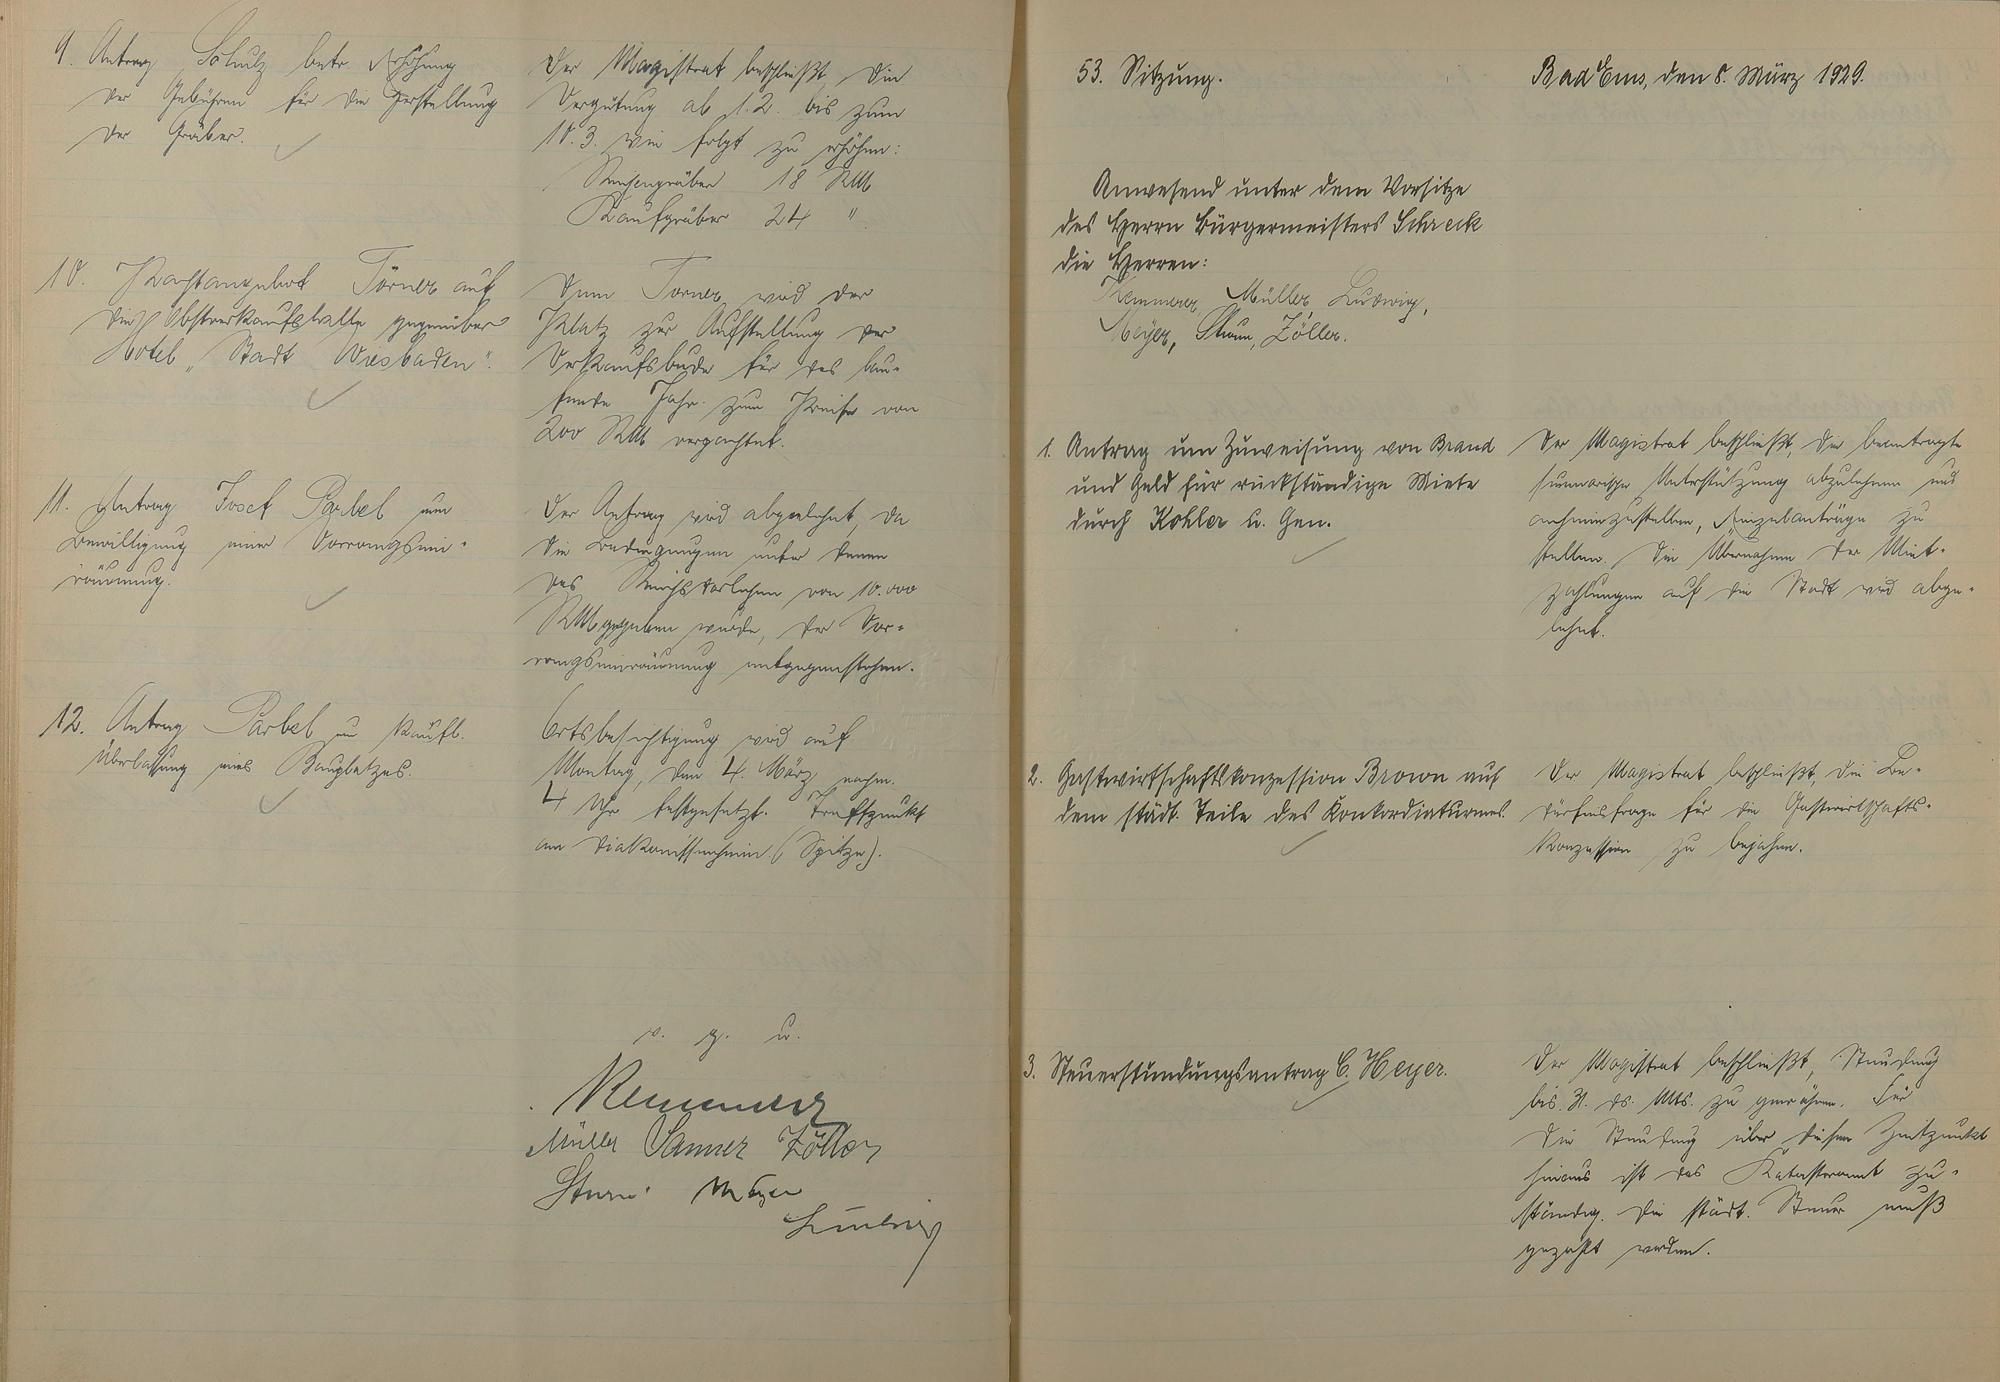 9. Antrag Schulz betr. Erhöhung
der Gebühren für die Herstellung
der Gräber.
Der Magistrat beschließt, die
Vergütung ab 1.2. bis zum
10.3. wie folgt zu erhöhen:
Reihengräber 18 RM
Kaufgräber 24 "
10. Pachtangebot Törner auf
die Obstverkaufshalle gegenüber
Hotel „Stadt Wiesbaden".
Dem Törner wird der
Platz zur Aufstellung der
Verkaufsbude für das lau-
fende Jahr zum Preise von
200 RM verpachtet.
11. Antrag Josef Parbel um
Bewilligung einer Vorrangsein-
räumung.
Der Antrag wird abgelehnt, da
die Bedingungen unter denen
das Reichsdarlehen von 10.000
RM gegeben wurde, der Vor-
rangseinräumung entgegenstehen.
12. Antrag Parbel um käufl.
Überlassung eines Bauplatzes.
Ortsbesichtigung wird auf
Montag, den 4. März nachm.
4 Uhr festgesetzt. Treffpunkt
am Diakonissenheim (Spitze).
v. g. u.
Remmerer
Müller Sanner Zöller
Sturm Meyer
Ludwig
53. Sitzung.
Bad Ems, den 8. März 1929.
Anwesend unter dem Vorsitze
des Herrn Bürgermeisters Schreck
die Herren:
Remmerer, Müller, Ludwig,
Meyer, Sturm, Zöller.
1. Antrag um Zuweisung von Brand
und Geld für rückständige Miete
durch Kohler u. Gen.
Der Magistrat beschließt, die beantragte
summarische Unterstützung abzulehnen und
anheimzustellen, Einzelanträge zu
stellen. Die Übernahme der Miet-
zahlungen auf die Stadt wird abge-
lehnt.
2. Gastwirtschaftskonzession Brown auf
dem städt. Teile des Konkordiaturmes.
Der Magistrat beschließt, die Be-
dürfnisfrage für die Gastwirtschafts-
konzession zu bejahen.
3. Steuerstundungsantrag C. Heyer.
Der Magistrat beschließt, Stundung
bis 31. ds. Mts. zu gewähren. Für
die Stundung über diesen Zeitpunkt
hinaus ist das Katasteramt zu-
ständig. Die städt. Steuer muß
gezahlt werden.